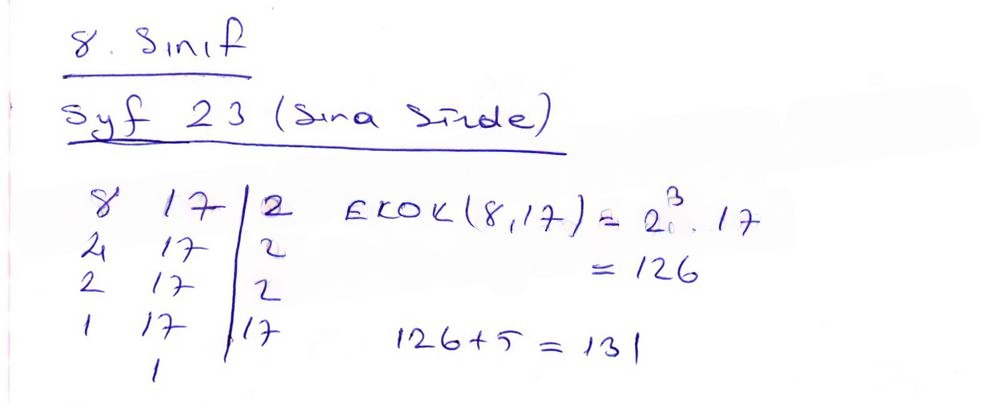 8. Sınıf
Syf 23 (Sıra Sizde)
8 17 | 2 EKOK(8,17) = 2³ . 17
4 17 | 2
= 126
2 17 | 2
1 17 | 17 126+5 = 131
1